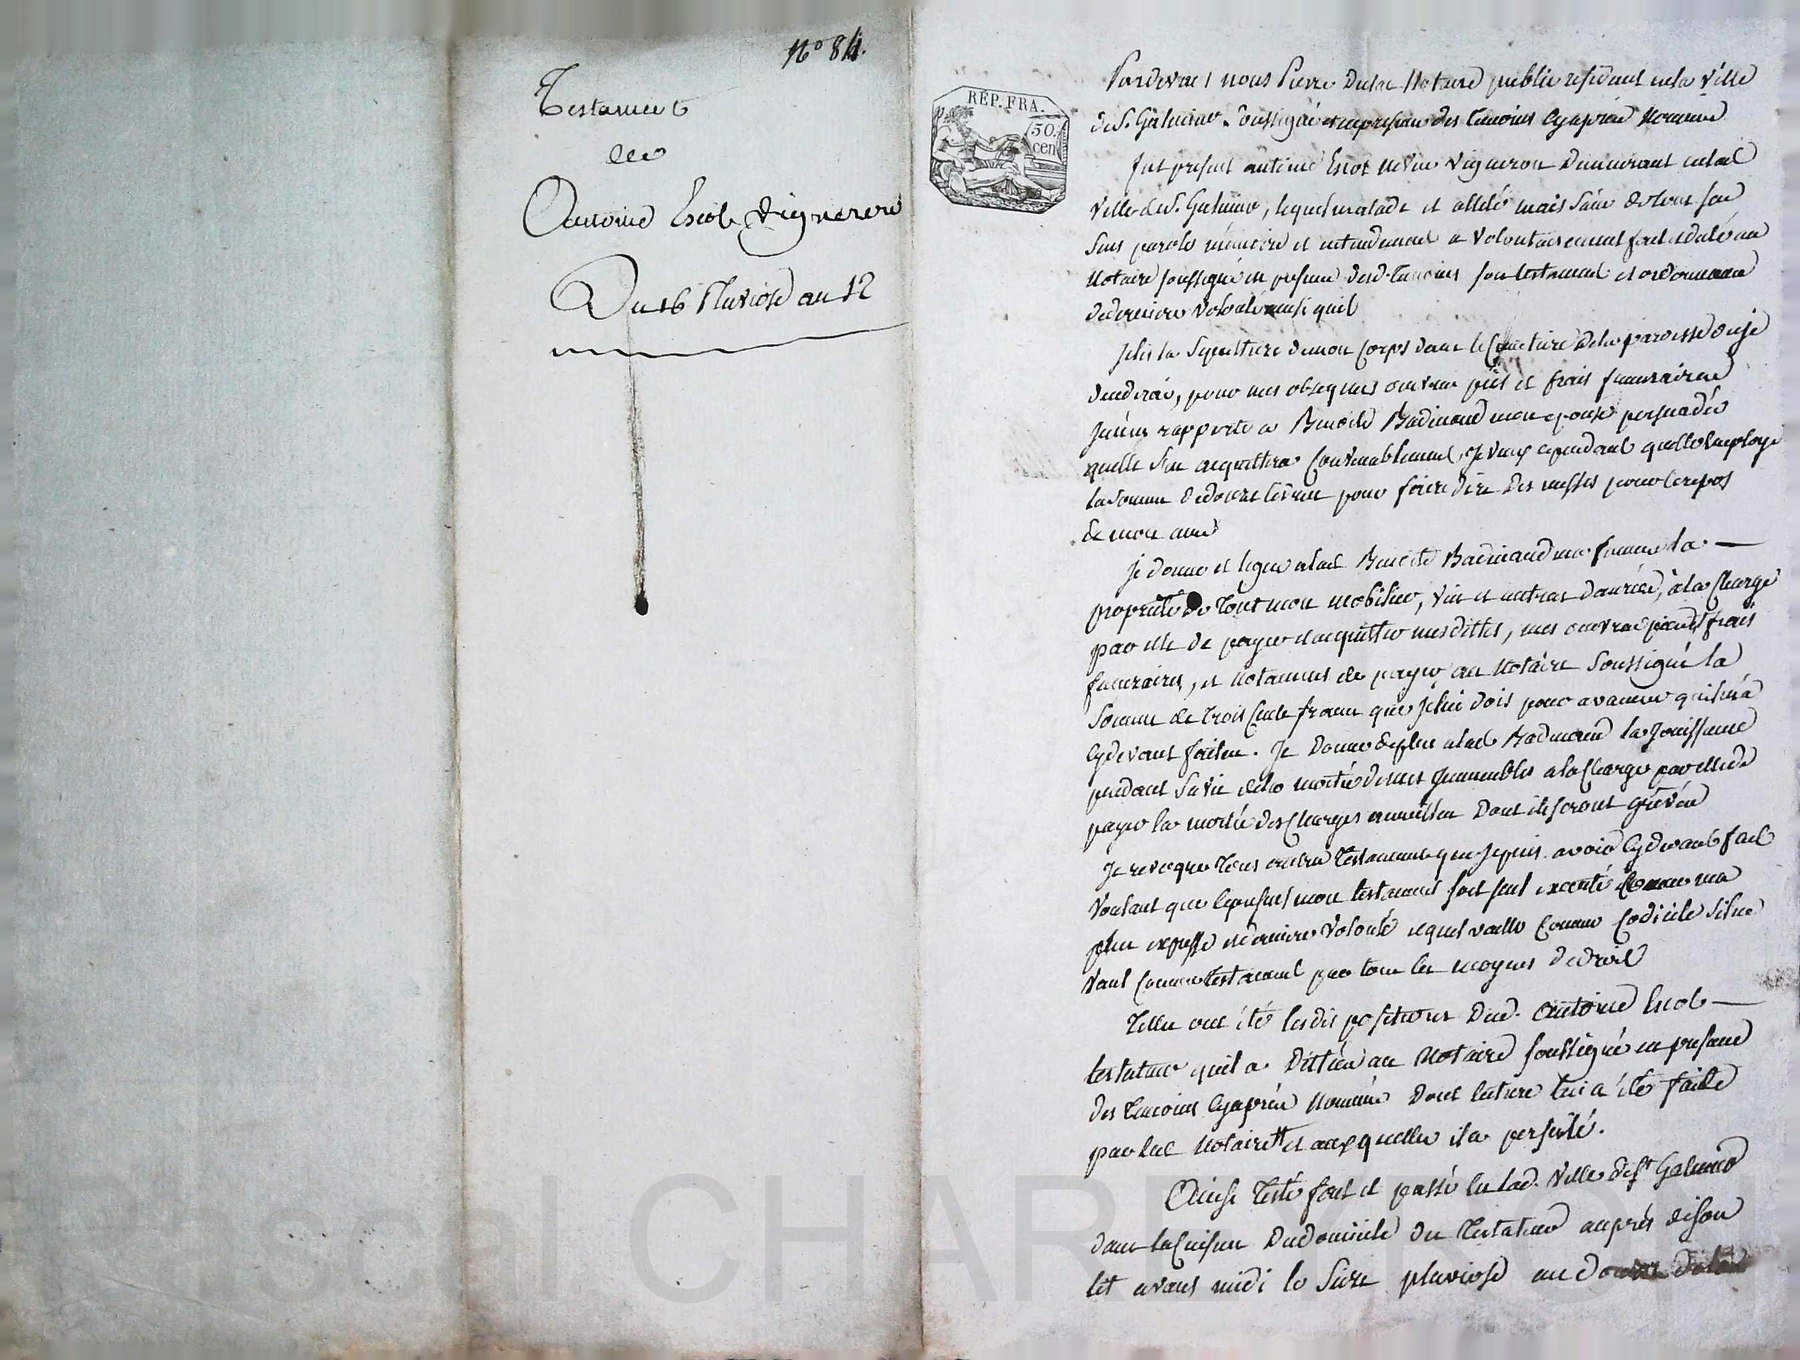 N° 84.
Testament
de
Antoine Escot Vigneron
Du 16 Pluviose an 12
RÉP. FRA.
50.
cen
Pardevant nous Pierre Notaire public résidant en la ville
de S. Galmier Soussigné et en presence des temoins cyaprès nommés
fut present antoine Escot vigneron demeurant en lad
ville de S. Galmier, lequel malade et allité mais sain de tous ses
sens parole mémoire et entendement a volontairement fait et dicté au
Notaire soussigné en presence desd. temoins son testament et ordonnance
de derniere volonté ainsi quil
Jelis la Sepulture de mon Corps dans le Cimetiere de la paroisse ou je
decederai, pour mes obseques œuvres pies et frais funeraires
Jemen rapporte a Benoite Badinand mon epouse persuadé
quelle sen acquittera Convenablement, Je veux cependant quelle employe
la somme de douze livres pour faire dire des messes pour le repos
de mon ame
je donne et legue a lad Benoite Badinand ma femme la
propriété de tout mon mobilier, vin et autres denrées, a la Charge
par elle de payer et acquitter mes dettes, mes œuvres pies et frais
funeraires, et notament de payer au Notaire Soussigné la
Somme de trois Cents francs que je lui dois pour avances quil ma
cydevant faites. Je donne de plus a lad Badinand la Jouissance
pendant Sa vie de la moitié de mes Immeubles a la Charge par elle de
payer la moitié des Charges annuelles dont ils seront grévés
Je revoque tous autres testaments que je puis avoir cydevant fait
Voulant que le present mon testament soit seul executé Comme ma
plus expresse et derniere volonté et quel vaille Comme Codicile Sil ne
vaut Comme testament par tous les moyens de droit
Telles ont été les dispositions dud. Antoine Escot
testateur quil a dictées au Notaire soussigné en presence
des temoins cyaprès nommés dont lecture lui a été faite
par led Notaire et auxquelles il a persisté.
Ainsi testé fait et passé en lad. Ville de St Galmier
dans la Cuisine du domicile du testateur auprès de son
lit avant midi le Seize pluviose an douze de la
CHAR